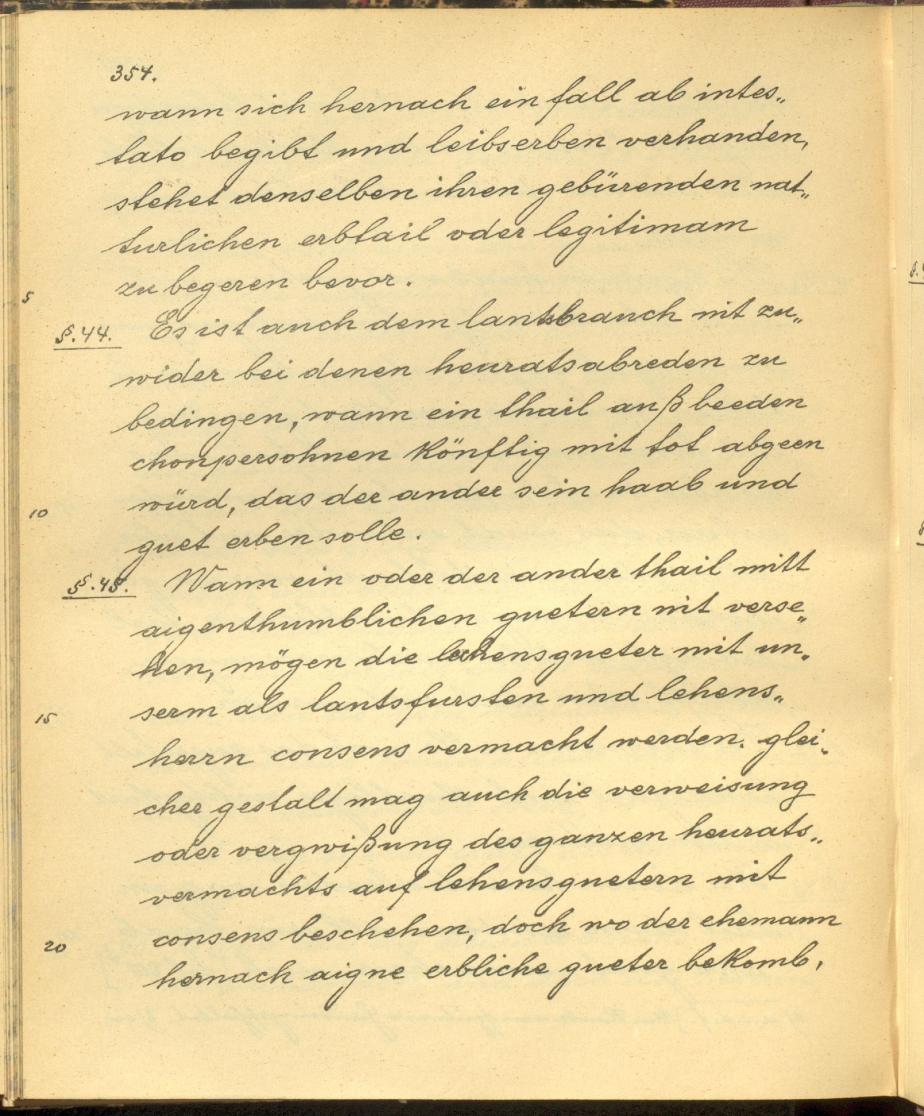 354.
wann sich hernach ein fall ab intes„
tato begibt und leibserben verhanden,
stehet denselben ihren gebürenden nat„
turlichen erbtail oder legitimam
5 zu begeren bevor.
§.44. Es ist auch dem lantsbrauch nit zu„
wider bei denen heuratsabreden zu
bedingen, wann ein thail auß beeden
chonpersohnen könftig mit tot abgeen
10 würd, das der ander sein haab und
guet erben solle.
§.45. Wann ein oder der ander thail mitt
aigenthumblichen guetern nit verse„
hen, mögen die lehensgueter mit un„
15 serm als lantsfursten und lehens„
herrn consens vermacht werden. glei„
cher gestalt mag auch die verweisung
oder vergwißung des ganzen heurats„
vermachts auf lehensguetern mit
20 consens beschehen, doch wo der ehemann
hernach aigne erbliche gueter bekomb,